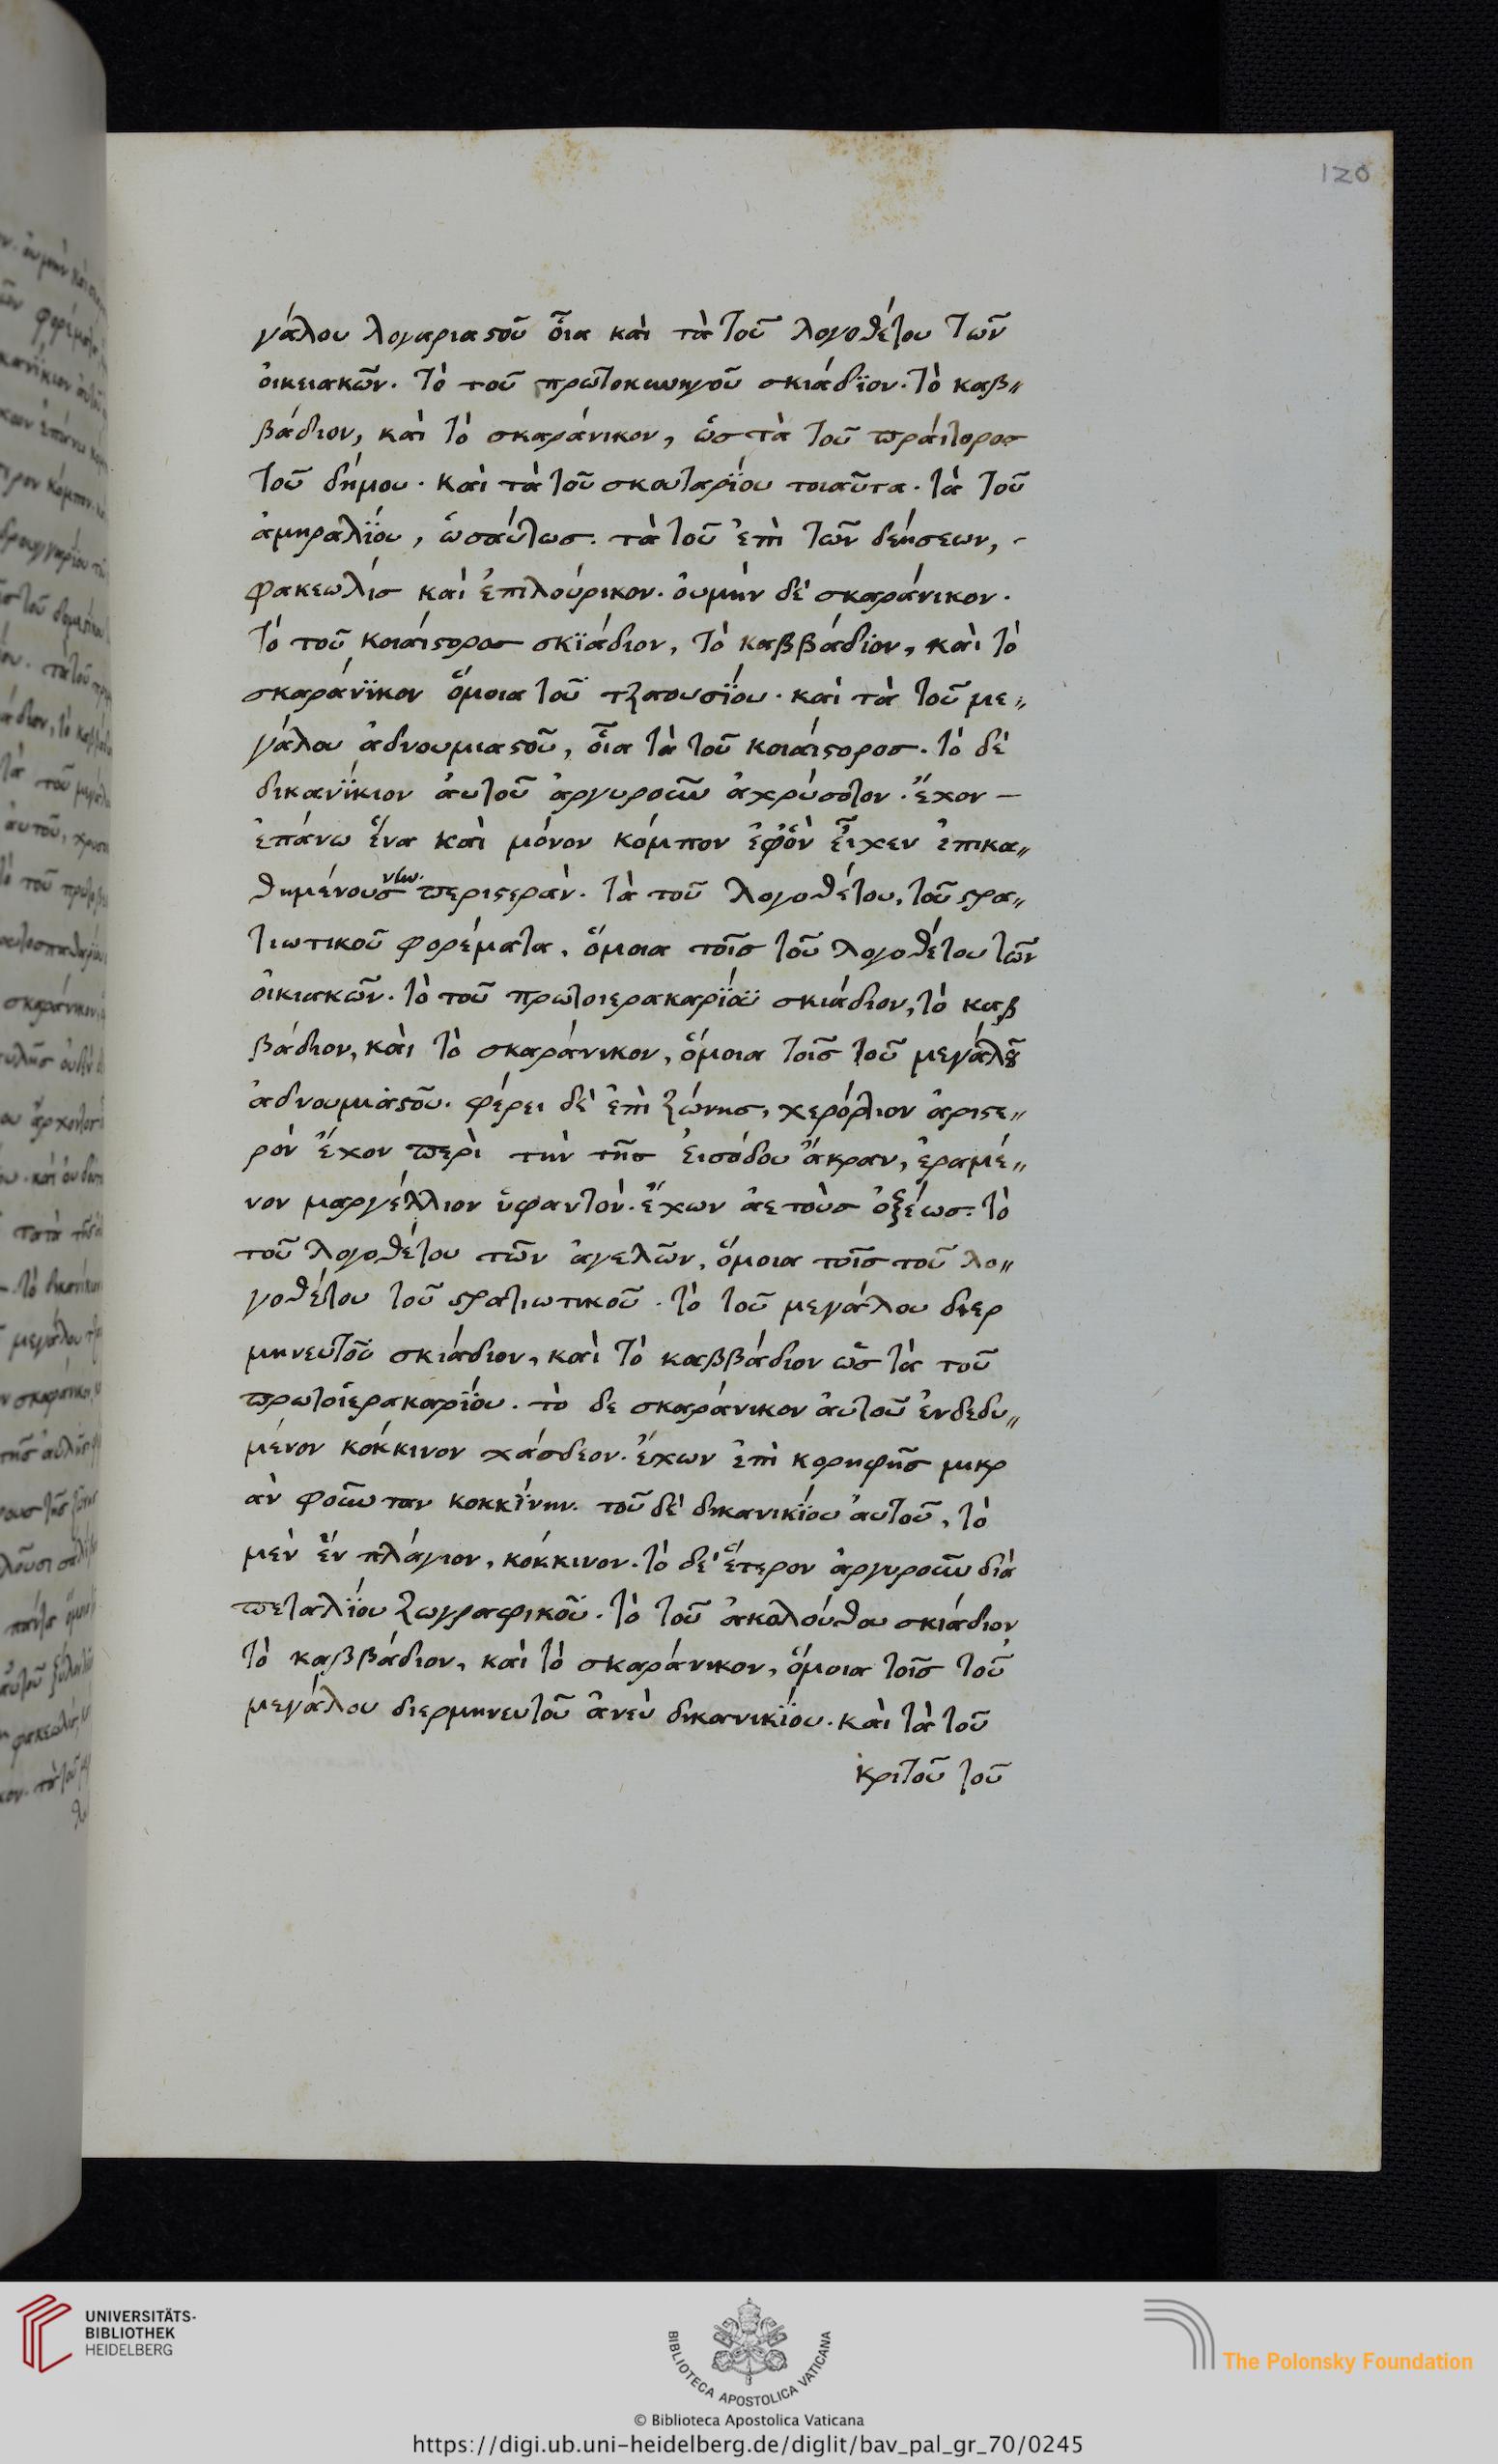 120
γάλου λογαριαϛοῦ οἷα καὶ τὰ τοῦ λογοθέτου τῶν
οἰκειακῶν. τὸ τοῦ πρωτοκυνηγοῦ σκιάδϊον. τὸ καβ〃
βάδιον, καὶ τὸ σκαράνικον, ὡσ τὰ τοῦ πραίτοροσ
τοῦ δήμου. καὶ τὰ τοῦ σκουταρΐου τοιαῦτα. τὰ τοῦ
ἀμηραλΐου, ὡσαύτωσ. τὰ τοῦ ἐπὶ τῶν δεήσεων,
φακεωλὶσ καὶ ἐπιλούρικον. ὀυμὴν δὲ σκαράνικον.
τὸ τοῦ κοιαίϛοροσ σκϊάδιον, τὸ καββάδϊον, καὶ τὸ
σκαράνϊκον ὅμοια τοῦ τζαουσΐου. καὶ τὰ τοῦ με〃
γάλου ἀδνουμιαϛοῦ, οἷα τὰ τοῦ κοιαίϛοροσ. τὸ δὲ
δικανΐκιον ἀυτοῦ ἀργυροῦν ἀχρύσοτον. ἔχον –
ἐπάνω ἕνα καὶ μόνον κόμπον ἐφὃν εἶχεν ἐπικα〃
θημένουσ περιϛεράν. τὰ τοῦ λογοθέτου, τοῦ ϛρα〃
τιωτικοῦ φορέματα, ὅμοια τοῖσ τοῦ λογοθέτου τῶν
ὀικιακῶν. τὸ τοῦ πρωτοιερακαρΐου σκιάδιον, τὸ καβ
βάδιον, καὶ τὸ σκαράνικον, ὅμοια τοῖσ τοῦ μεγάλȣ
ἀδνουμιαϛοῦ. φέρει δὲ ἐπὶ ζώνησ, χερόρτιον ἀριϛε〃
ρὸν ἔχον περὶ τὴν τῆσ ἐισόδου ἄκραν, ἐραμέ〃
νον μαργέλλιον ὑφαντὸν. ἔχων ἀετοὺσ ὀξέωσ. τὸ
τοῦ λογοθέτου τῶν ἀγελῶν, ὅμοια τοῖσ τοῦ λο〃
γοθέτου τοῦ ϛρατιωτικοῦ. τὸ τοῦ μεγάλου διερ
μηνευτοῦ σκιάδιον, καὶ τὸ καββάδιον ὡσ τὰ τοῦ
πρωτοϊερακαρΐου. τὸ δε σκαράνικον ἀυτοῦ ἐνδεδυ〃
μένον κόκκινον χάσδεον. ἔχων ἐπὶ κορηφῆσ μικρ
ὰν φοῦνταν κοκκΐνην. τοῦ δὲ δικανικΐου ἀυτοῦ, τὸ
μὲν ἓν πλάγιον, κόκκινον. τὸ δὲ ἕτερον ἀργυροῦν διὰ
πεταλΐου ζωγραφικοῦ. τὸ τοῦ ἀκολούθου σκιάδιον
τὸ καββάδιον, καὶ τὸ σκαράνικον, ὅμοια τοῖσ τοῦ
μεγάλου διερμηνευτοῦ ἄνευ δικανικΐου. καὶ τὰ τοῦ
κριτοῦ τοῦ
UNIVERSITÄTS-
BIBLIOTHEK
HEIDELBERG
BIBLIOTECA APOSTOLICA VATICANA
The Polonsky Foundation
© Biblioteca Apostolica Vaticana
https://digi.ub.uni-heidelberg.de/diglit/bav_pal_gr_70/0245